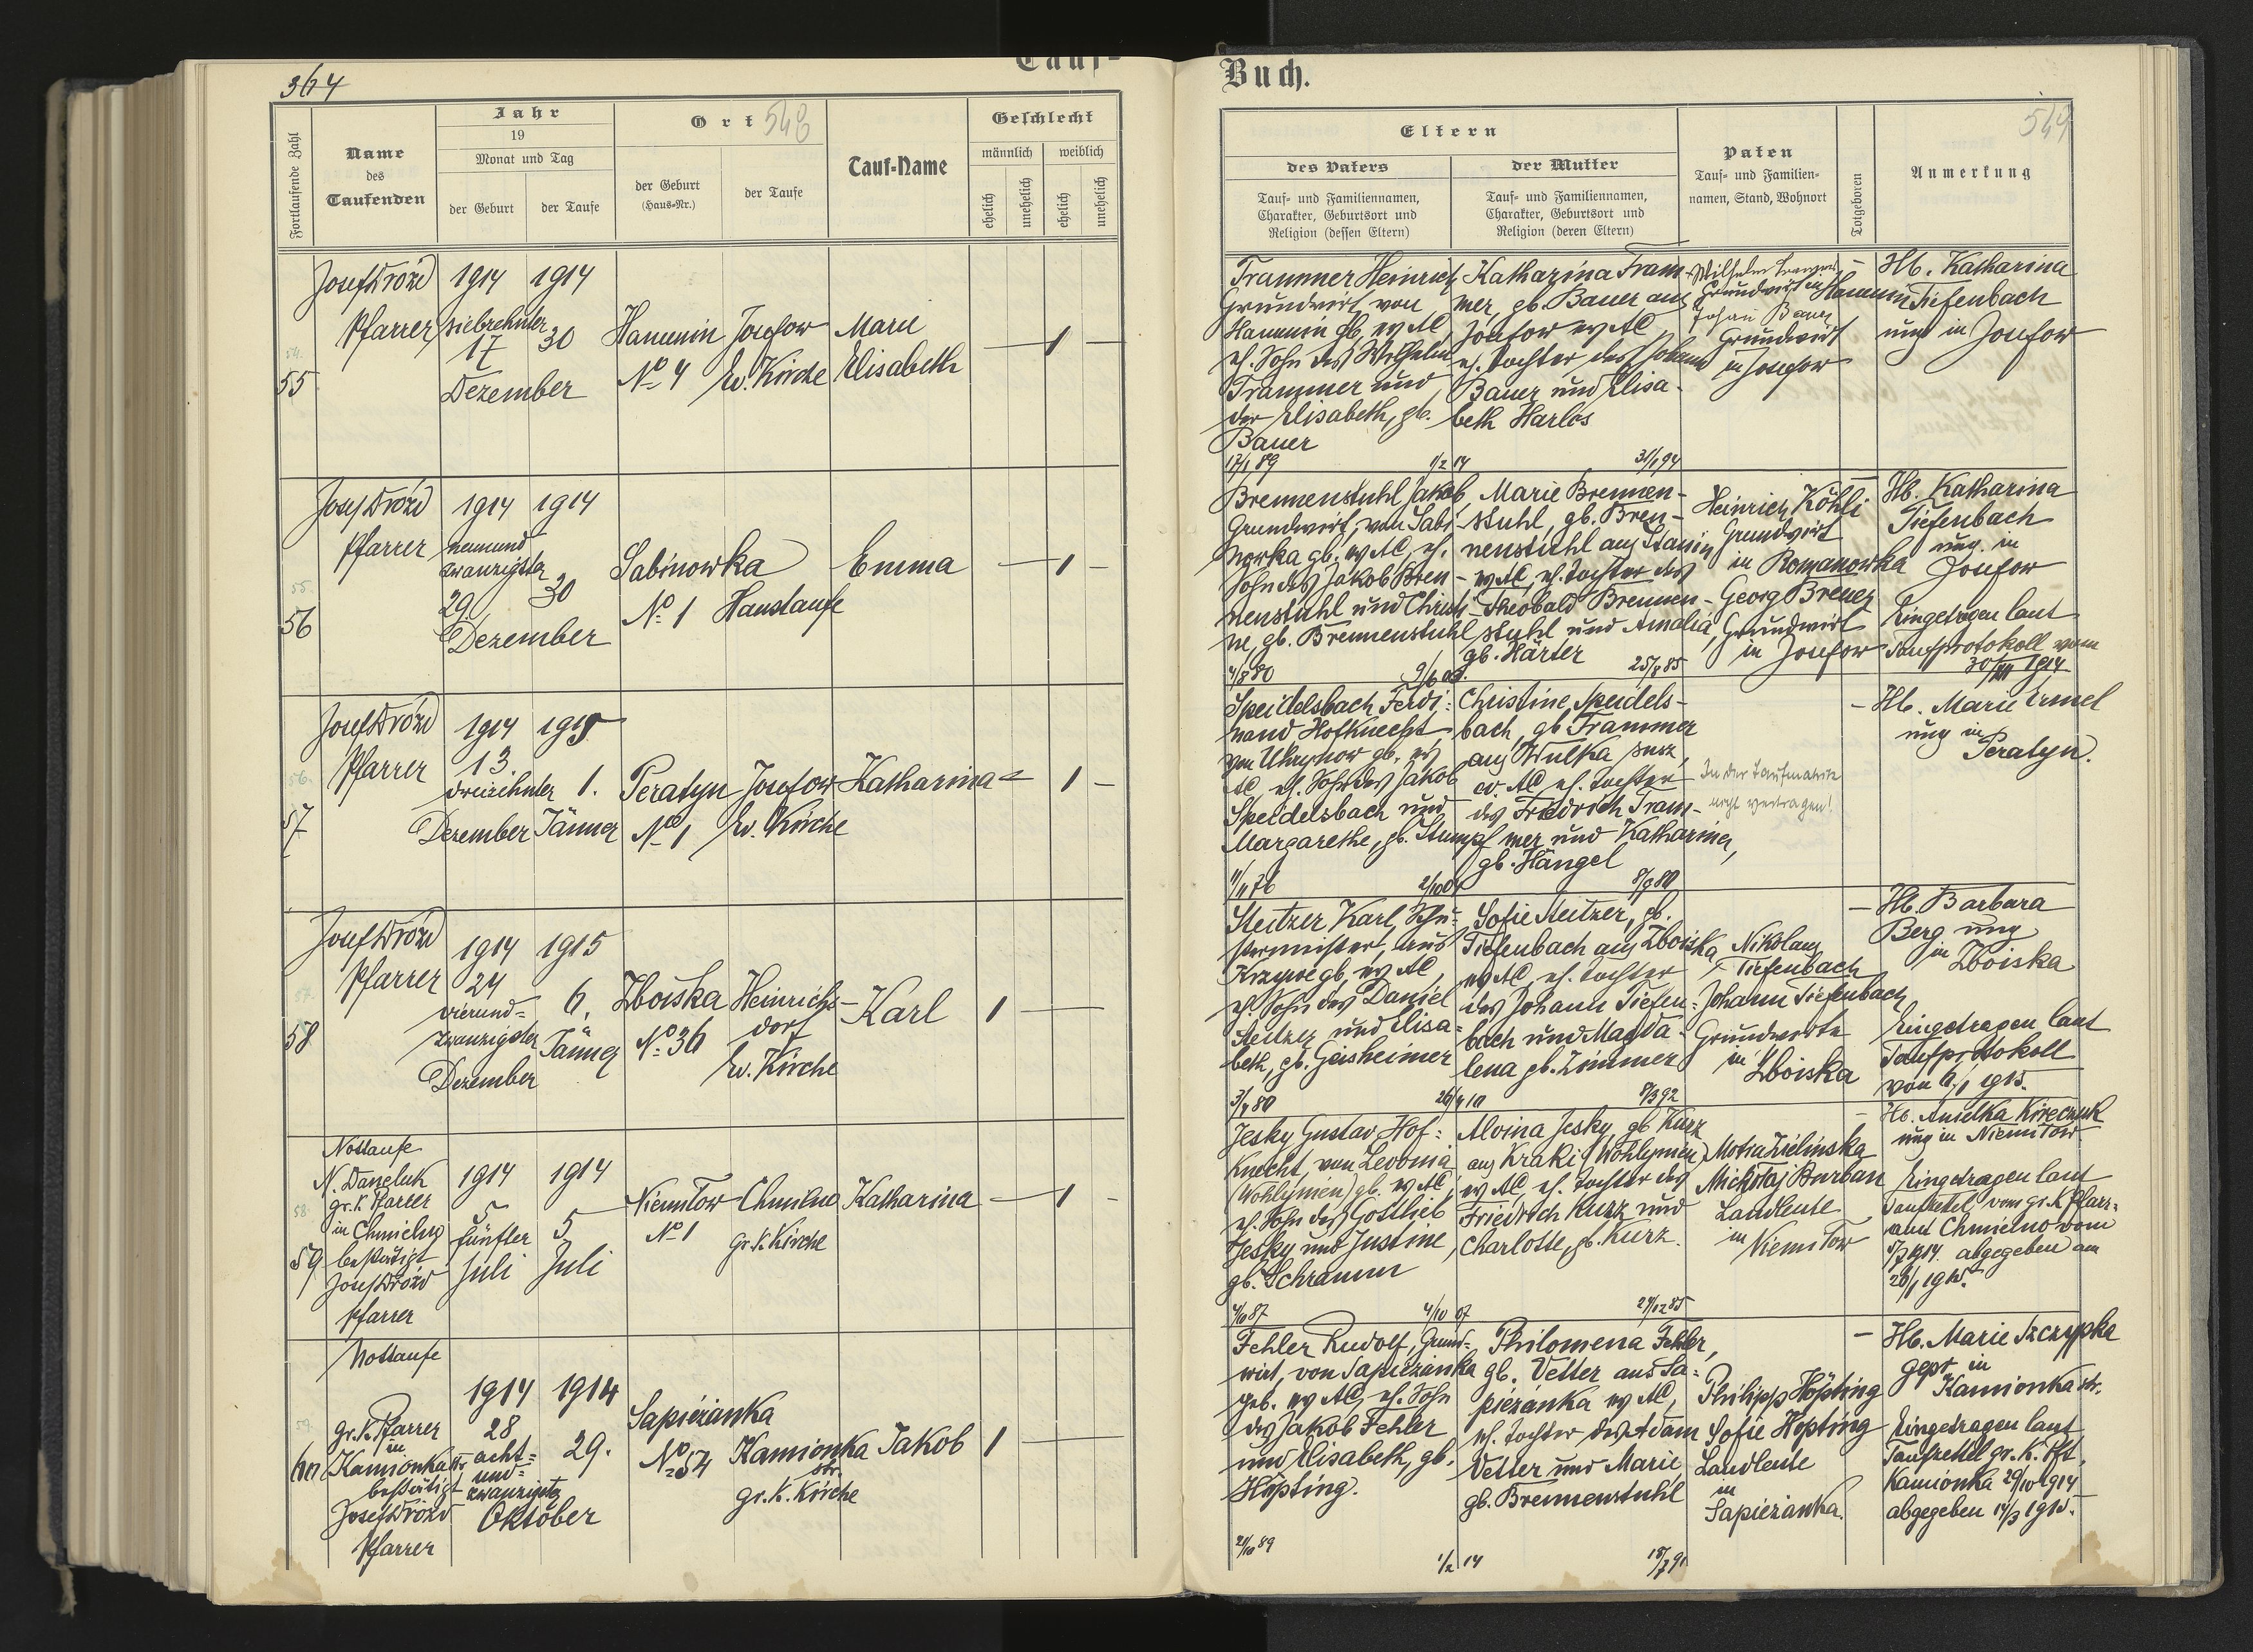 364
Tauf-
Buch.
548
549
Fortlaufende Zahl
Name
des
Taufenden
Jahr
19
Monat und Tag
der Geburt
der Taufe
Ort
der Geburt
(Haus-Nr.)
der Taufe
Tauf-Name
Geschlecht
männlich
weiblich
ehelich
unehelich
ehelich
unehelich
Eltern
des Vaters
Tauf- und Familiennamen,
Charakter, Geburtsort und
Religion (dessen Eltern)
der Mutter
Tauf- und Familiennamen,
Charakter, Geburtsort und
Religion (deren Eltern)
Paten
Tauf- und Familien-
namen, Stand, Wohnort
Totgeboren
Anmerkung
54.
55
Josef Drozd
Pfarrer
1914
siebzehnter
17
Dezember
1914
30
Hanunin
No 4
Josefow
Ev. Kirche
Marie
Elisabeth
1
Trammer Heinrich
Grundwirt von
Hanunin gb. ev AC,
eh. Sohn des Wilhelm
Trammer und
der Elisabeth, gb.
Bauer
1/2 14
Katharina Tram-
mer, gb. Bauer aus
Josefow ev AC,
eh. Tochter des Johann
Bauer und Elisa-
beth Harlos
31/1 94
Wilhelm Trammer
Grundwirt in Hanunin
Johann Bauer
Grundwirt
in Josefow
Hb. Katharina
Tiefenbach
ung in Josefow
55.
56
Josef Drozd
Pfarrer
1914
neunund
zwanzigster
29
Dezember
1914
30
Sabinowka
No 1
Haustaufe
Emma
1
Brennenstuhl Jakob
Grundwirt, von Sabi-
nowka gb. ev AC, eh.
Sohn des Jakob Bren-
nenstuhl und Christi-
ne, gb. Brennenstuhl
4/8 80
Marie Brennen-
stuhl, gb. Bren-
nenstuhl aus Stanin
ev AC, eh. Tochter des
Theobald Brennen-
stuhl und Amalia,
gb. Härter
25/8 85
Heinrich Köhli
Grundwirt
in Romanowka
Georg Breuer
Grundwirt
in Josefow
Hb. Katharina
Tiefenbach
ung. in
Josefow
Eingetragen laut
Taufprotokoll vom
30/XII 1914
56.
57
Josef Drozd
Pfarrer
1914
13.
dreizehnter
Dezember
1915
1.
Jänner
Peratyn
No 1
Josefow
Ev. Kirche
Katharina
1
Speidelsbach Ferdi-
nand Hofknecht
AC, eh. Sohn des Jakob
Speidelsbach und
Margarethe, gb. Stumpf
Christine Speidels-
bach, gb. Trammer
aus Wulka susz,
ev. AC eh. Tochter
des Friedrich Tram-
mer und Katharina,
gb. Hängel
In der Taufmatrik
nicht vertragen!
Hb. Marie Ermel
ung in
Peratyn.
57.
58
Josef Drozd
Pfarrer
1914
24
vierund-
zwanzigster
Dezember
1915
6.
Jänner
Zboiska
No 36
Heinrichs-
dorf
Ev. Kirche
Karl
1
Steitzer Karl, Schu-
stermeister, aus
eh Sohn des Daniel
Steitzer und Elisa-
beth, gb. Geisheimer
3/4 80
Sofie Steitzer, gb.
Tiefenbach aus Zboiska
ev AC, eh. Tochter
des Johann Tiefen-
bach und Magda-
lena gb. Zimmer
8/3 92
Nikolaus
Tiefenbach
Johann Tiefenbach
Grundwirte
in
Zboiska
Hb. Barbara
Berg ung
in Zboiska
Eingetragen laut
Taufprotokoll
von 6/1 1915.
58.
59
Nottaufe
N. Daneluk
gr. k. Pfarrer
in Chmielno
bestätigt
Josef Drozd
Pfarrer
1914
5
fünfter
Juli
1914
5
Juli
Niemiłow
No 1
Chmielno
gr. k. Kirche
Katharina
1
Jesky Gustav Hof-
knecht, von Leobnia
(Wohlynien) gb. ev AC,
eh. Sohn des Gottlieb
Jesky und Justine,
gb. Schramm
4/10 07
Alvina Jesky gb Kurz
aus Kraki (Wohlynien)
ev AC, eh. Tochter des
Friedrich Kurz und
Charlotte, gb. Kurz.
Motra Zielinska
Mickołaj Burban
Landleute
in
Niemiłow
Hb. Anielka Kireczuk
ung in Niemiłow
Eingetragen laut
Taufzettel vom gr. K. Pfarr-
amt Chmielno vom
5/7 1914. abgegeben am
28/1 1915.
59.
60
Nottaufe
gr. k. Pfarrer
in
Kamionka str.
bestätigt
Josef Drozd
Pfarrer
1914
28
acht-
und-
zwanzigster
Oktober
1914
29.
Sapiezanka
No 54
Kamionka
str.
gr. K. Kirche
Jakob
1
Fehler Rudolf, Grund-
wirt, von Sapiezanka
geb. ev AC, eh. Sohn
des Jakob Fehler
und Elisabeth, gb.
Höpting.
21/10 89
1/2 14
Philomena Fehler,
gb. Vetter aus Sa-
piezanka ev AC,
eh. Tochter des Adam
Vetter und Marie
gb. Brennenstuhl
Philipp Höpting
Sofie Höpting
Landleute
in
Sapiezanka.
Hb. Marie Szczypka
gepr in
Kamionka str.
Eingetragen laut
Taufzettel gr. K. Pft.
Kamionka 29/10 1914
abgegeben 14/3 1915.